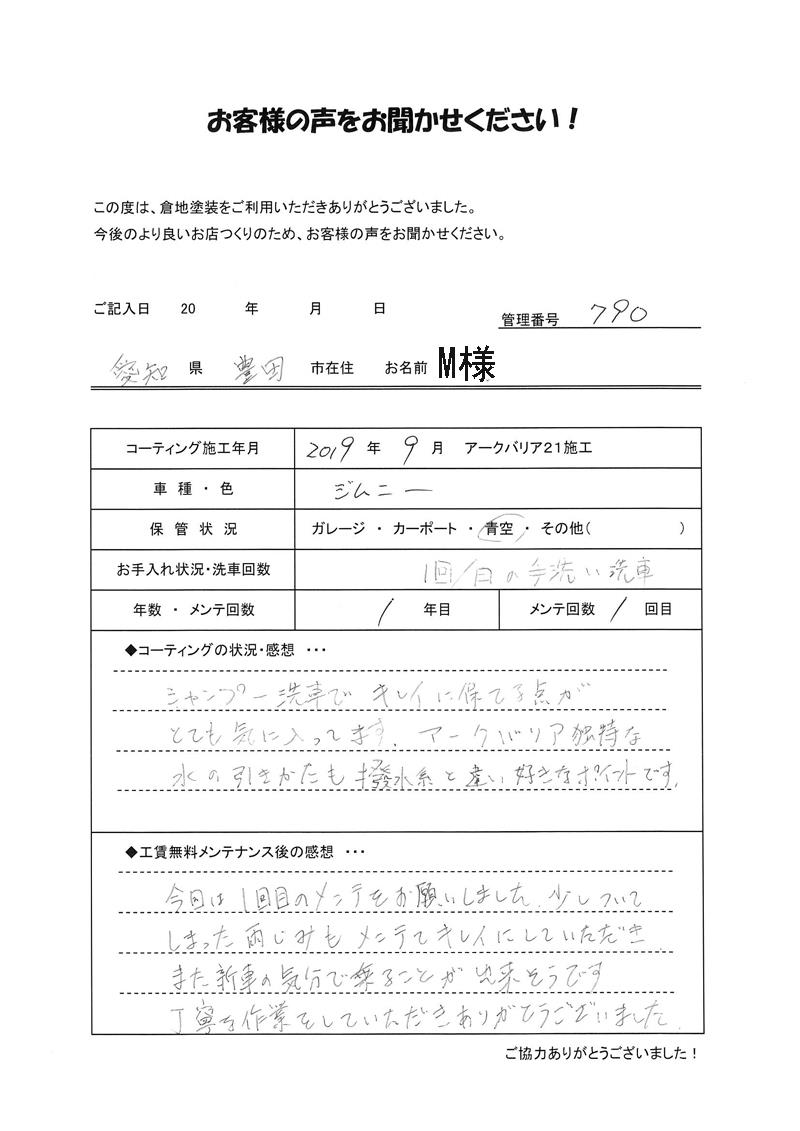 お客様の声をお聞かせください！
この度は、倉地塗装をご利用いただきありがとうございました。
今後のより良いお店つくりのため、お客様の声をお聞かせください。
ご記入日 20 年 月 日
管理番号 790
愛知 県 豊田 市在住 お名前 M様
コーティング施工年月 2019 年 9 月 アークバリア21施工
車種・色 ジムニー
保管状況 ガレージ ・ カーポート ・ 青空 ・ その他( )
お手入れ状況・洗車回数 1回/月の手洗い洗車
年数 ・ メンテ回数 1 年目 メンテ回数 1 回目
◆コーティングの状況・感想 ・・・
シャンプー洗車で キレイに保てる点が
とても気に入ってます. アークバリア独特な
水の引きかたも 撥水系と違い 好きなポイントです.
◆工賃無料メンテナンス後の感想 ・・・
今回は 1回目のメンテをお願いしました. 少しついて
しまった 雨じみも メンテでキレイにしていただき
また新車の気分で乗ることが 出来そうです
丁寧な作業をしていただきありがとうございました.
ご協力ありがとうございました！